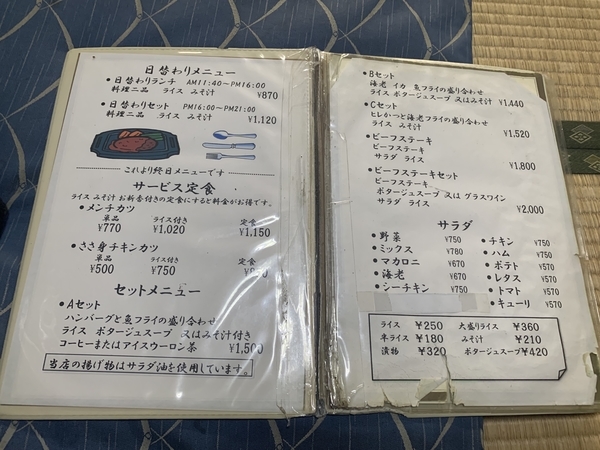 日替わりメニュー
・日替わりランチ AM11:40〜PM16:00
料理二品 ライス みそ汁 ¥870
・日替わりセット PM16:00〜PM21:00
料理二品 ライス みそ汁 ¥1,120
これより終日メニューです
サービス定食
ライス みそ汁 お新香付きの定食にすると料金がお得です。
・メンチカツ
単品 ライス付き 定食
¥770 ¥1,020 ¥1,150
・ささ身チキンカツ
単品 ライス付 定食
¥500 ¥750
セットメニュー
・Aセット
ハンバーグと魚フライの盛り合わせ
ライス ポタージュスープ 又はみそ汁付き
コーヒーまたはアイスウーロン茶 ¥1,500
当店の揚げ物はサラダ油を使用しています。
・Bセット
海老 イカ 魚フライの盛り合わせ
ライス ポタージュスープ 又はみそ汁
¥1,440
・Cセット
ヒレかつと海老フライの盛り合わせ
ライス みそ汁
¥1,520
・ビーフステーキ
ビーフステーキ
サラダ ライス
¥1,800
・ビーフステーキセット
ビーフステーキ
ポタージュスープ 又は グラスワイン
サラダ ライス
¥2,000
サラダ
・野菜 ¥750
・ミックス ¥780
・マカロニ ¥670
・海老 ¥670
・シーチキン ¥750
・チキン ¥750
・ハム ¥750
・ポテト ¥570
・レタス ¥570
・トマト ¥570
・キューリ ¥570
ライス ¥250 大盛りライス ¥360
半ライス ¥180 みそ汁 ¥210
漬物 ¥320 ポタージュスープ ¥420